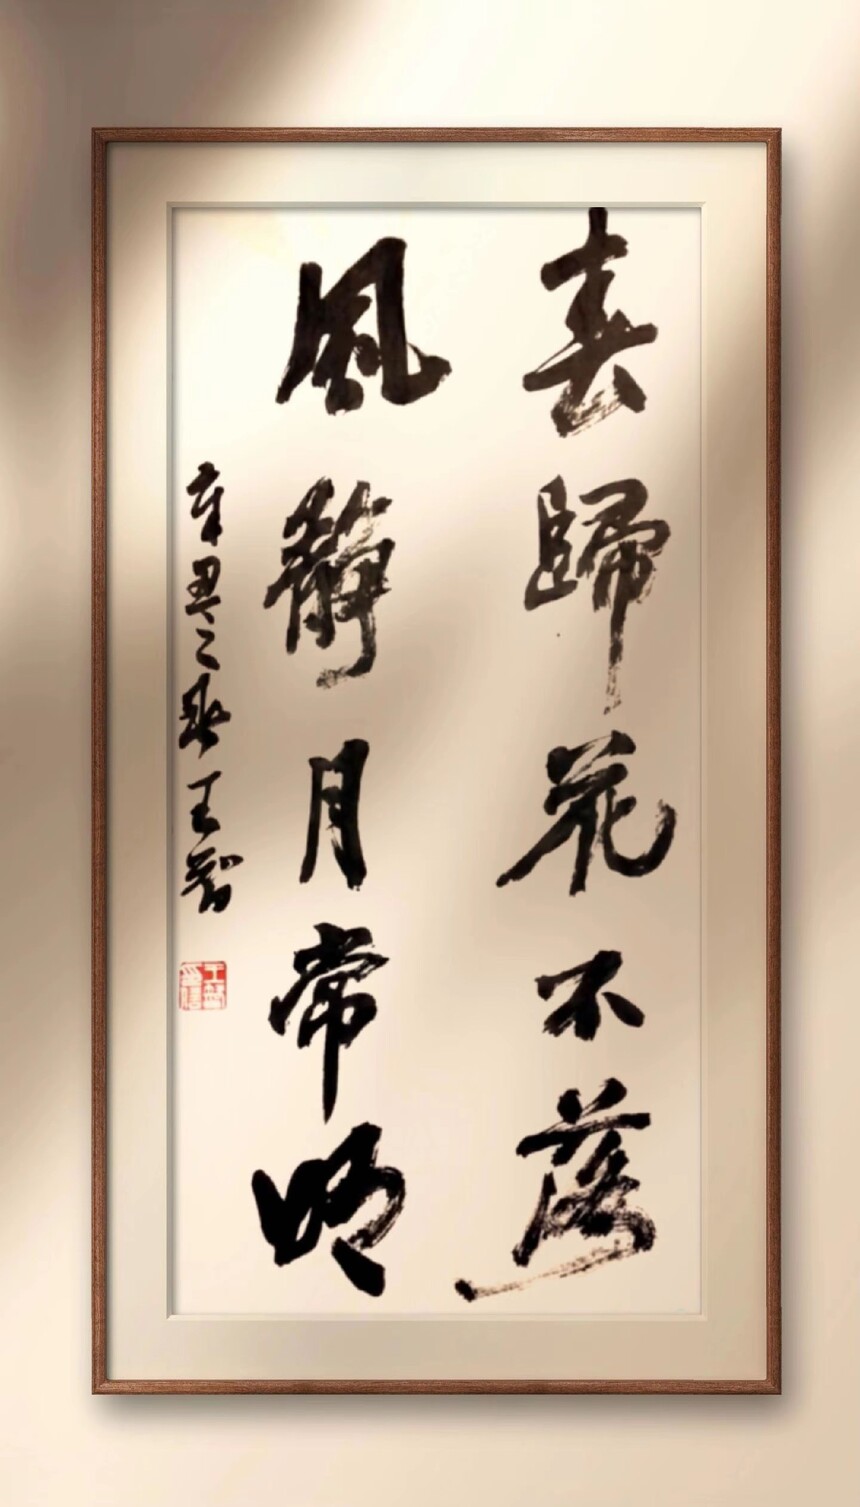 春歸花不落
風靜月常明
辛丑之秋王智